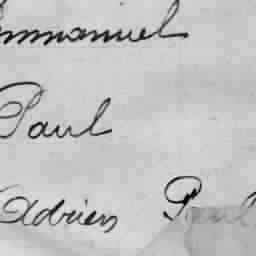 Emmanuel
Paul
Adrien Paul